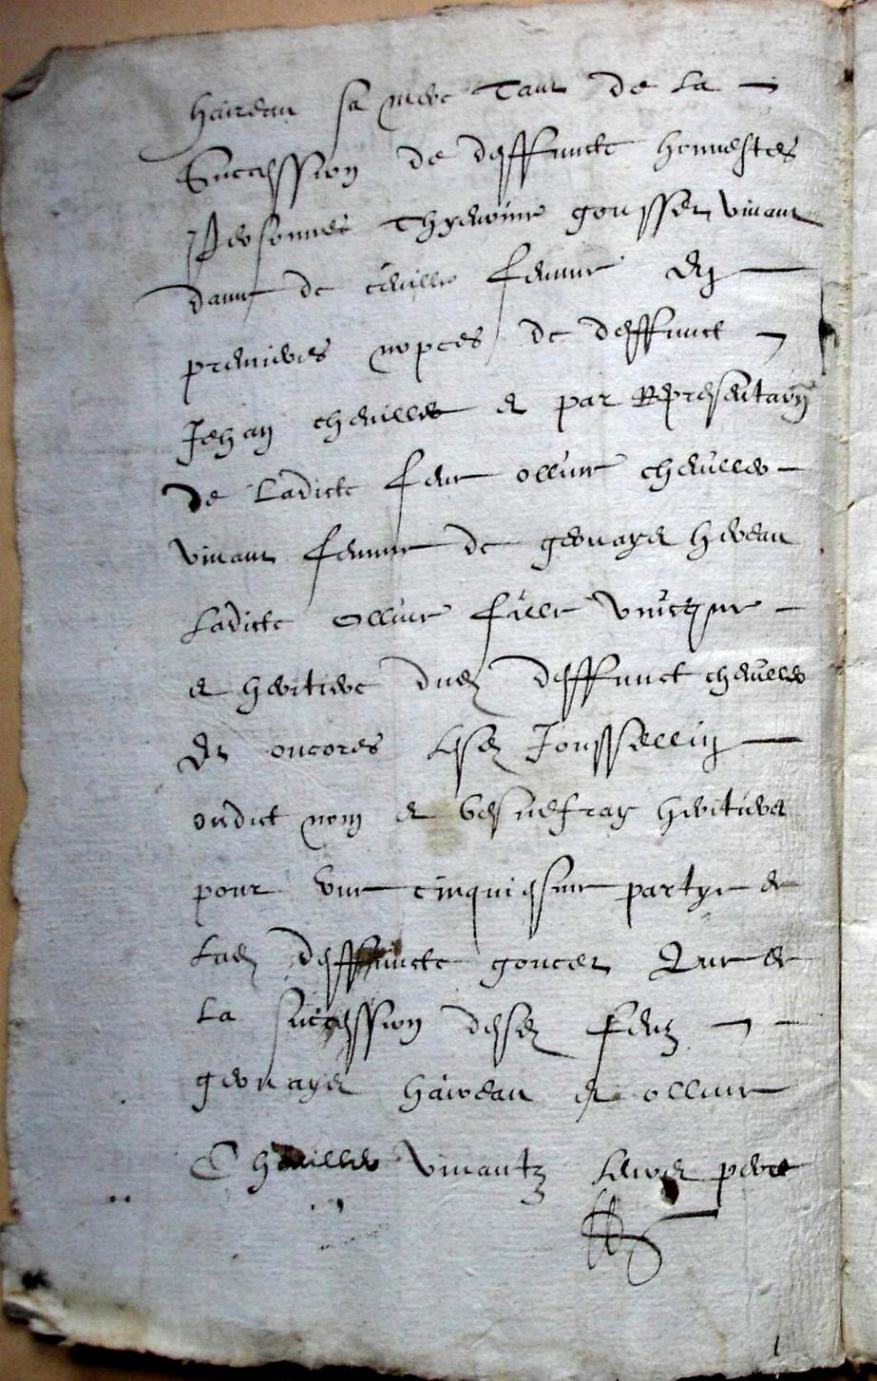 haireau sa mere Tant de La
Succession de deffuncte honnestes
Personnes Thyenoine gousset vivant
dame de cheviller femme En
premieres nopces de deffunct
Jehan cheviller et par Representation
de Ladicte feue ollive cheviller
vivant femme de gervaise hereau
Ladicte Ollive fille unicque
et heritiere dud deffunct cheviller
Et oncores lesd Jousselin
oudict nom et heritiers
pour une cinquiesme partye de
Lad deffuncte goucet Que de
La succession desd feuz
gervaise haireau et ollive
Cheviller vivantz Leurs pere